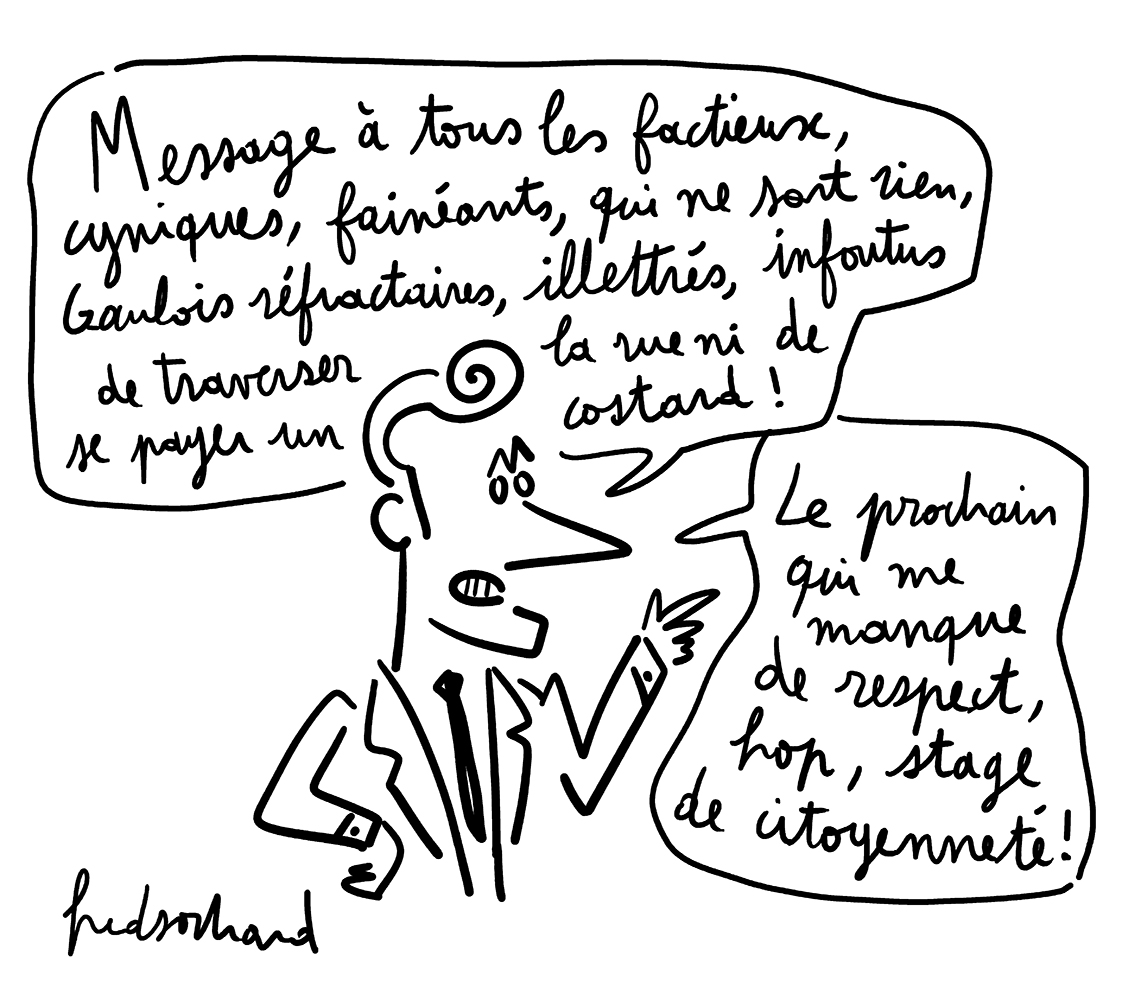 Message à tous les factieux,
cyniques, fainéants, qui ne sont rien,
Gaulois réfractaires, illettrés, infoutus
de traverser la rue ni de
se payer un costard !
Le prochain
qui me
manque
de respect,
hop, stage
de citoyenneté !
fredsochard